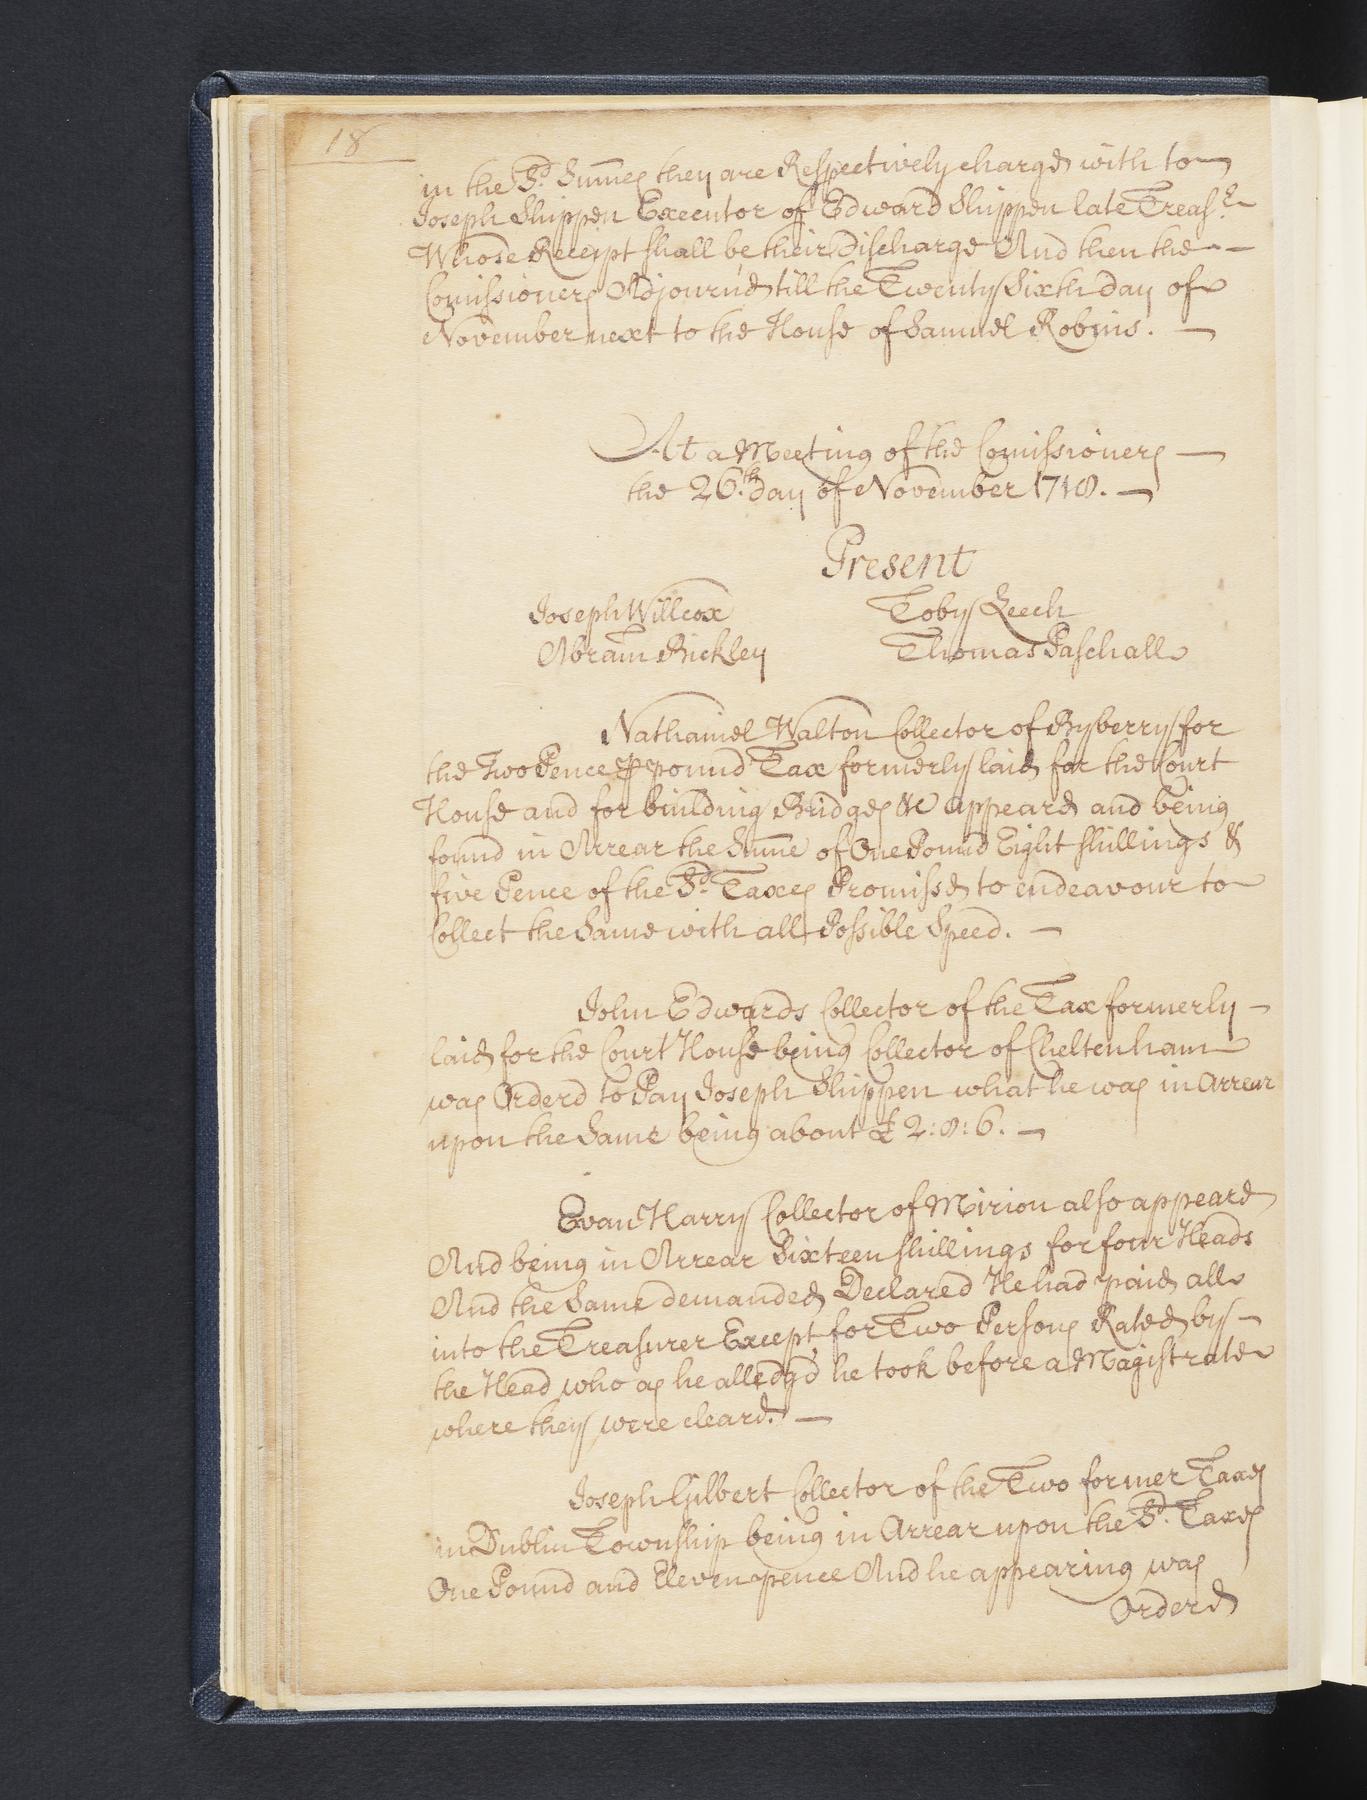 18
in the Sd. Sumes they are Respectively chargd with to
Joseph Shippen Executor of Edward Shippen late Treasr.
Whose Receipt shall be their Discharge And then the
Comissioners Adjourn'd till the Twenty Sixth day of
November next to the House of Samuel Robins.
At a Meeting of the Comissioners
the 26th. day of November 1718.
Present
Joseph Willcox Toby Leech
Abram Bickley Thomas Paschall
Nathaniel Walton Collector of Byberry for
the Two Pence ⅌ pound Tax formerly laid for the Court
House and for building Bridges &c appeard and being
found in Arrear the Sume of One Pound Eight shillings &
five Pence of the Sd. Taxes Promissd to endeavour to
Collect the Same with all Possible Speed.
John Edwards Collector of the Tax formerly
laid for the Court House being Collector of Cheltenham
was Orderd to Pay Joseph Shippen what he was in Arrear
upon the Same being about £ 2:8:6.
Evan Harry Collector of Mirion also appeard
And being in Arrear Sixteen shillings for four Heads
And the Same demanded Declared He had paid all
into the Treasurer Except for Two Persons Rated by
the Head who as he alledg'd he took before a Magistrate
where they were cleard.
Joseph Gilbert Collector of the Two former Taxes
in Dublin Township being in Arrear upon the Sd. Taxes
One Pound and Eleven pence And he appearing was
Orderd